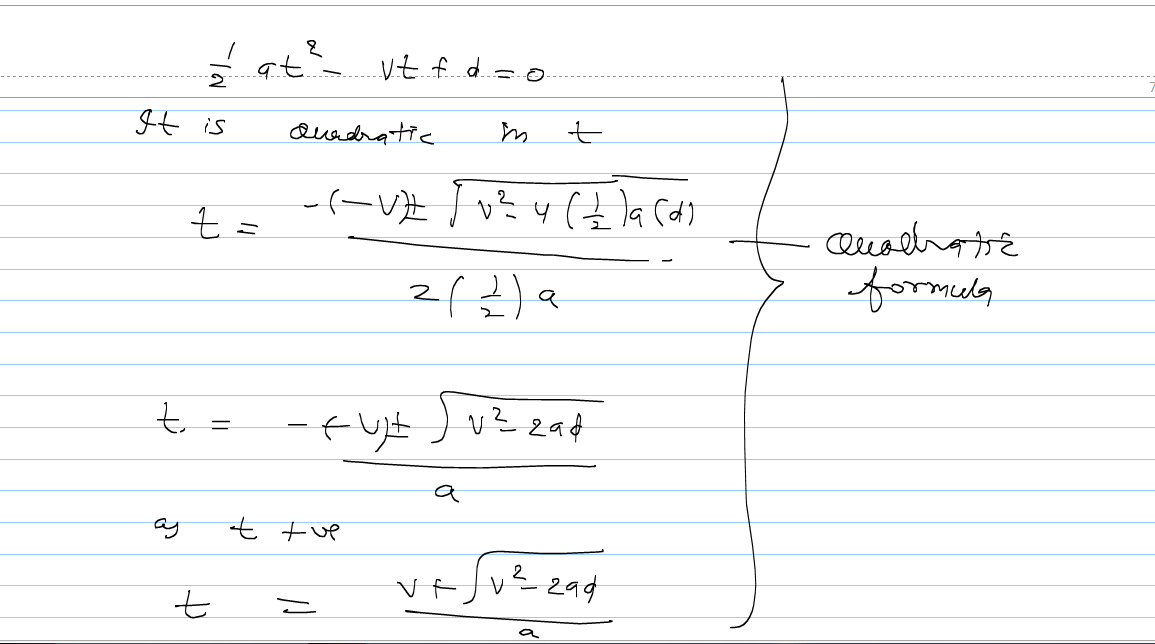 1/2 at² - vt + d = 0
It is quadratic in t
t = (-(-v) ± √(v² - 4(1/2)a(d))) / (2(1/2)a)
quadratic
formula
t = (-(-v) ± √(v² - 2ad)) / a
as t +ve
t = (v + √(v² - 2ad)) / a
7